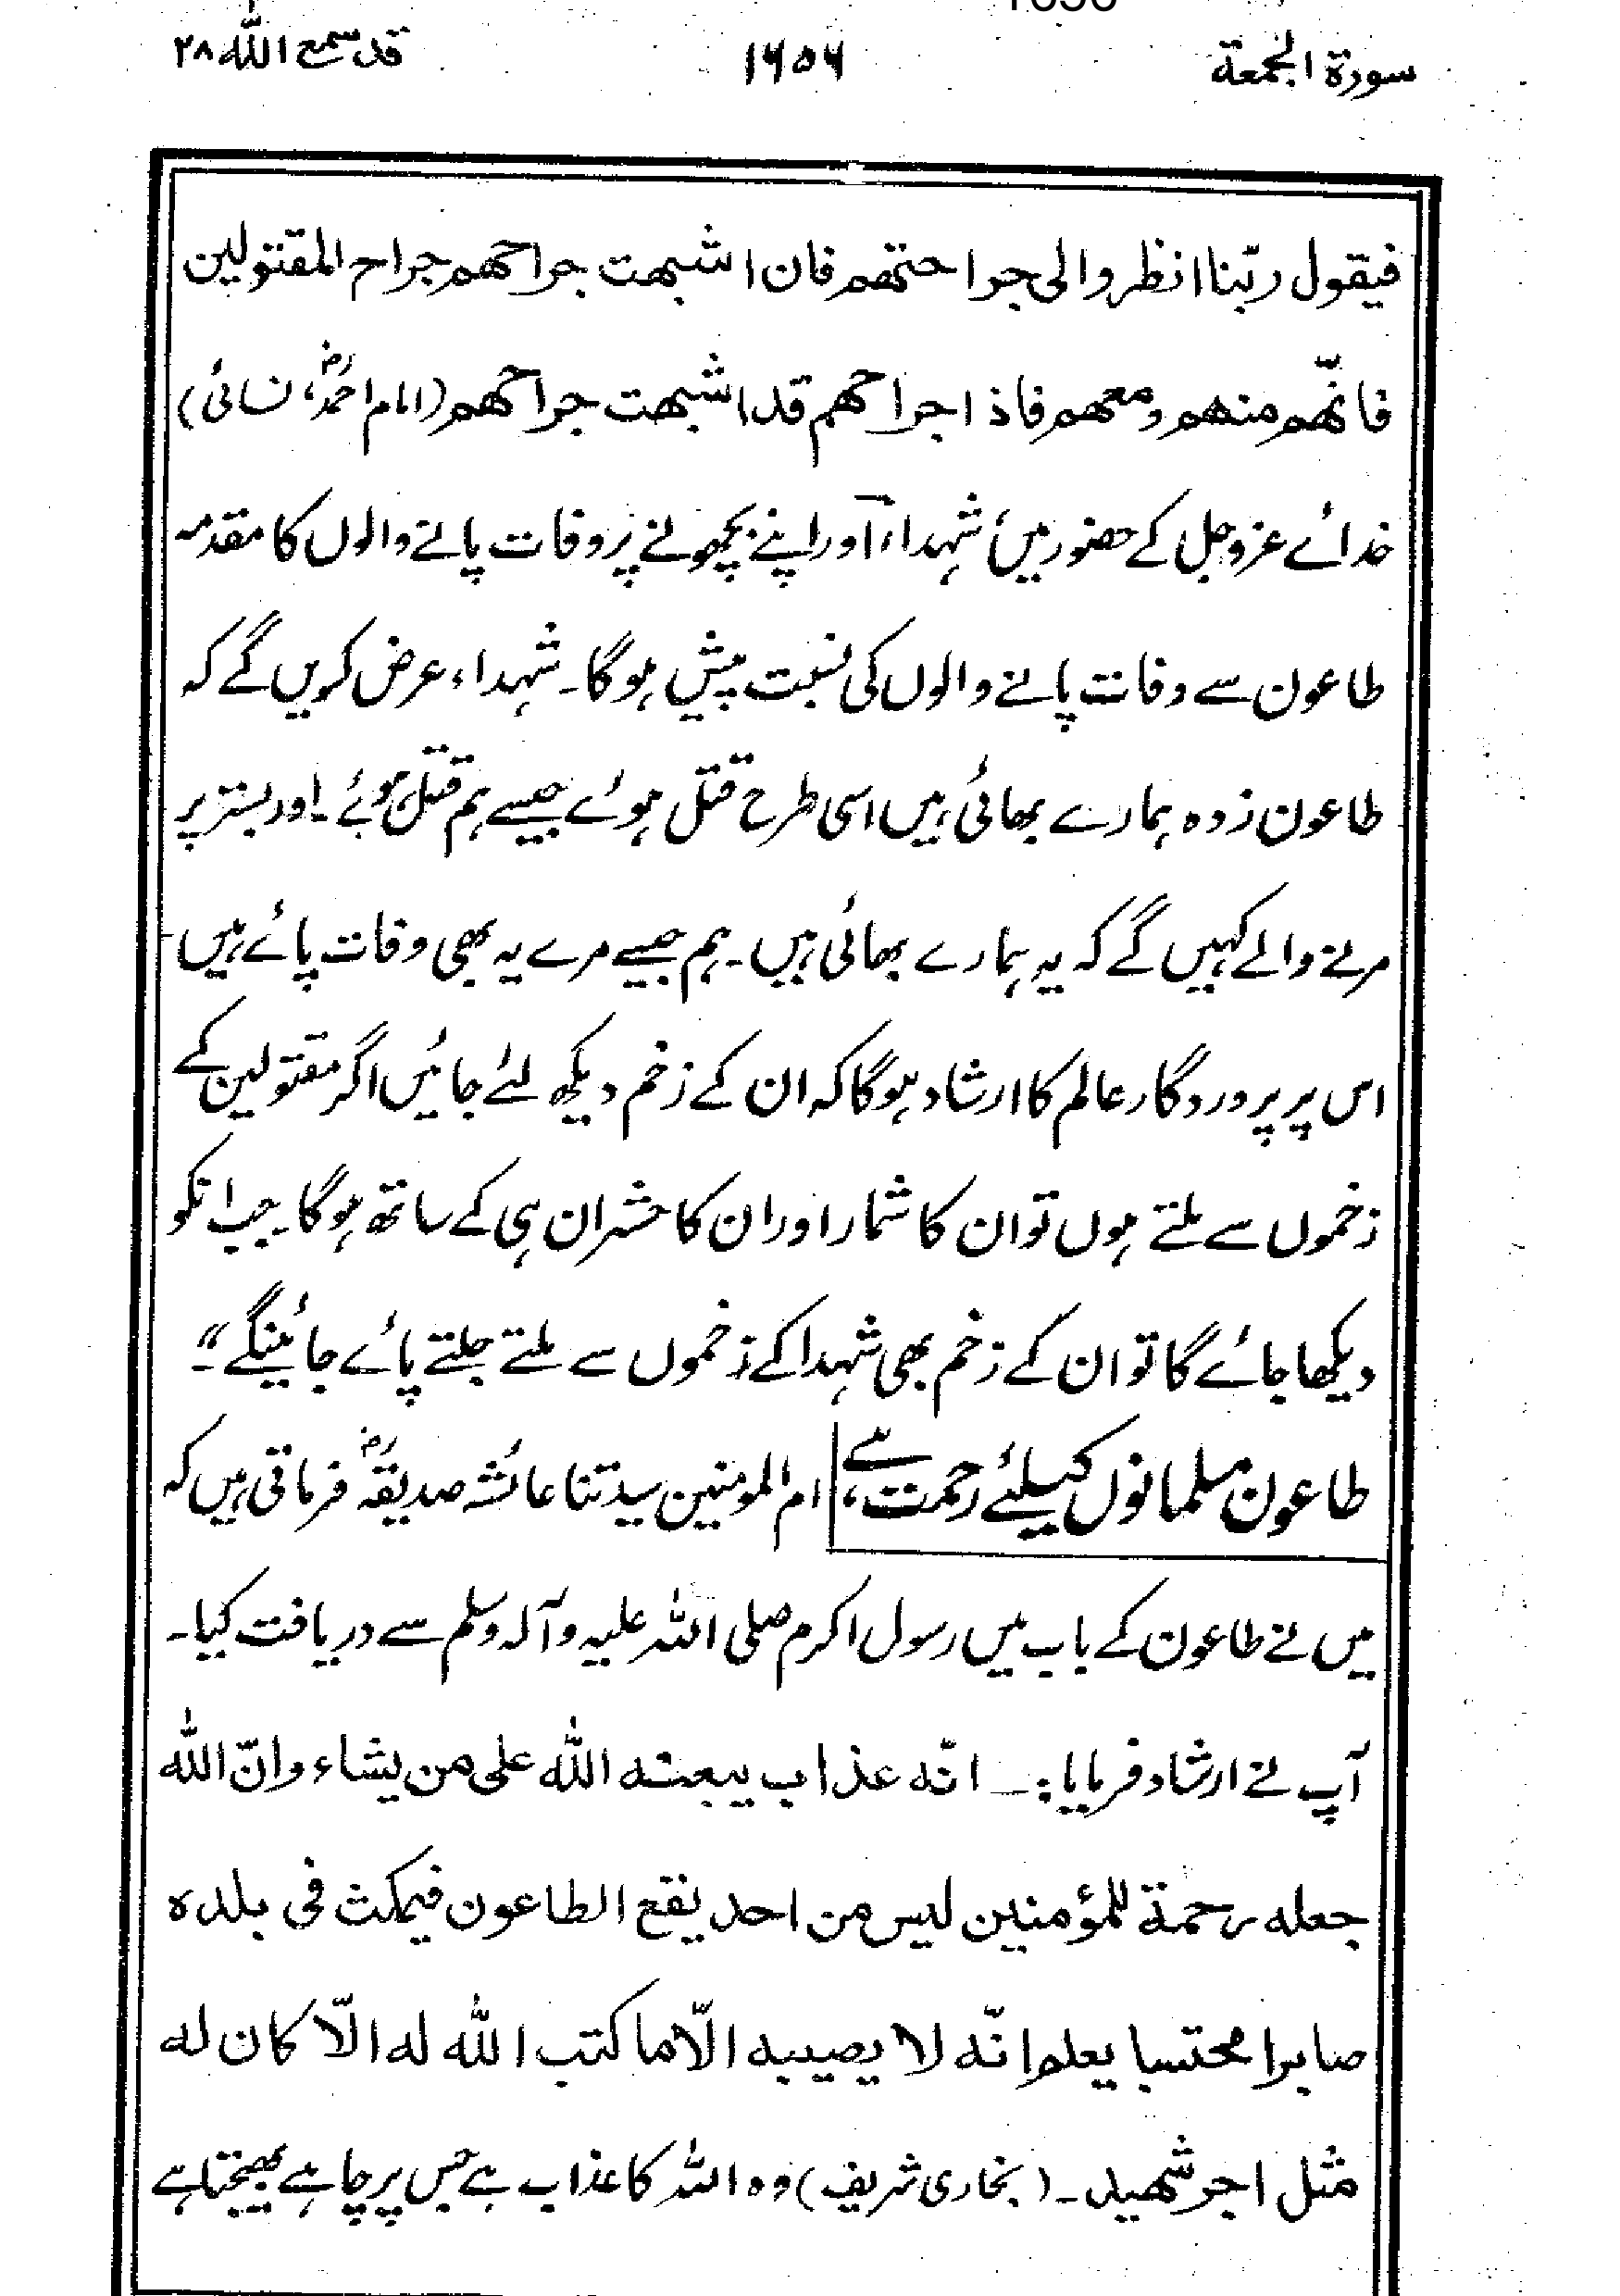 سورۃ الجمعۃ ۱۶۵۶ قد سمع اللہ ۲۸
فیقول ربّنا انظروا الی جراحتھم فان اشبھت جراحھم جراح المقتولین
فانّھم منھم ومعھم فاذا جراحھم قد اشبھت جراحھم (امام احمدؒ، نسائی)
خدائے عزوجل کے حضور میں شہداء اور اپنے بچھونے پر وفات پانے والوں کا مقدمہ
طاعون سے وفات پانے والوں کی نسبت پیش ہوگا۔ شہداء عرض کریں گے کہ
طاعون زدہ ہمارے بھائی ہیں اسی طرح قتل ہوئے جیسے ہم قتل ہوئے۔ اور بستر پر
مرنے والے کہیں گے کہ یہ ہمارے بھائی ہیں۔ ہم جیسے مرے یہ بھی وفات پائے ہیں
اس پر پروردگار عالم کا ارشاد ہوگا کہ ان کے زخم دیکھ لئے جائیں اگر مقتولین کے
زخموں سے ملتے ہوں تو ان کا شمار اور ان کا حشر ان ہی کے ساتھ ہوگا۔ جب انکو
دیکھا جائے گا تو ان کے زخم بھی شہدا کے زخموں سے ملتے جلتے پائے جائینگے"۔
طاعون مسلمانوں کیلئے رحمت ہے، ام المومنین سیدتنا عائشہ صدیقہؓ فرماتی ہیں کہ
میں نے طاعون کے باب میں رسول اکرم صلی اللہ علیہ وآلہ وسلم سے دریافت کیا۔
آپ نے ارشاد فرمایا:۔ انّہ عذاب یبعثہ اللہ علی من یشاء وانّ اللہ
جعلہ رحمۃ للمؤمنین لیس من احد یقع الطاعون فیمکث فی بلدہ
صابرا محتسبا یعلم انّہ لا یصیبہ الّا ما کتب اللہ لہ الّا کان لہ
مثل اجر شھید۔ (بخاری شریف) وہ اللہ کا عذاب ہے جس پر چاہے بھیجتا ہے